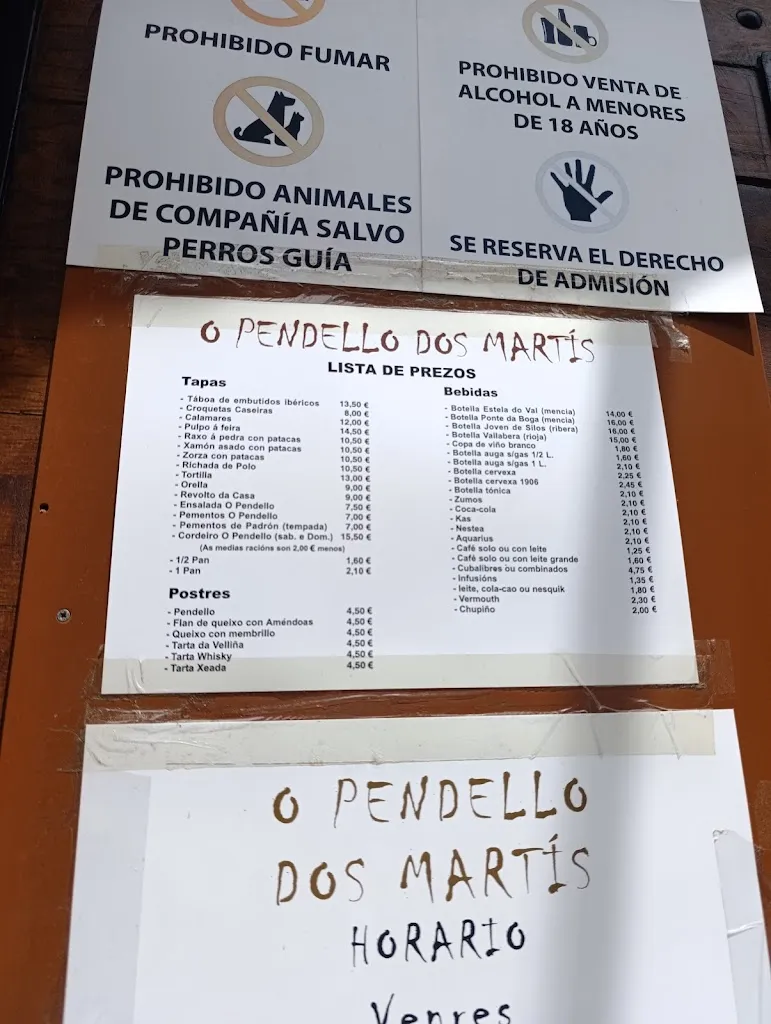 PROHIBIDO FUMAR
PROHIBIDO ANIMALES
DE COMPAÑÍA SALVO
PERROS GUÍA
PROHIBIDO VENTA DE
ALCOHOL A MENORES
DE 18 AÑOS
SE RESERVA EL DERECHO
DE ADMISIÓN
O PENDELLO DOS MARTÍS
LISTA DE PREZOS
Tapas
- Táboa de embutidos ibéricos 13,50 €
- Croquetas Caseiras 8,00 €
- Calamares 12,00 €
- Pulpo á feira 14,50 €
- Raxo á pedra con patacas 10,50 €
- Xamón asado con patacas 10,50 €
- Zorza con patacas 10,50 €
- Richada de Polo 10,50 €
- Tortilla 13,00 €
- Orella 9,00 €
- Revolto da Casa 9,00 €
- Ensalada O Pendello 7,50 €
- Pementos O Pendello 7,00 €
- Pementos de Padrón (tempada) 7,00 €
- Cordeiro O Pendello (sab. e Dom.) 15,50 €
(As medias racións son 2,00 € menos)
- 1/2 Pan 1,60 €
- 1 Pan 2,10 €
Postres
- Pendello 4,50 €
- Flan de queixo con Améndoas 4,50 €
- Queixo con membrillo 4,50 €
- Tarta da Velliña 4,50 €
- Tarta Whisky 4,50 €
- Tarta Xeada 4,50 €
Bebidas
- Botella Estela do Val (mencia) 14,00 €
- Botella Ponte da Boga (mencia) 16,00 €
- Botella Joven de Silos (ribera) 16,00 €
- Botella Vallabera (rioja) 15,00 €
- Copa de viño branco 1,80 €
- Botella auga s/gas 1/2 L. 1,60 €
- Botella auga s/gas 1 L. 2,10 €
- Botella cervexa 2,25 €
- Botella cervexa 1906 2,45 €
- Botella tónica 2,10 €
- Zumos 2,10 €
- Coca-cola 2,10 €
- Kas 2,10 €
- Nestea 2,10 €
- Aquarius 2,10 €
- Café solo ou con leite 1,25 €
- Café solo ou con leite grande 1,60 €
- Cubalibres ou combinados 4,75 €
- Infusións 1,35 €
- leite, cola-cao ou nesquik 1,80 €
- Vermouth 2,30 €
- Chupiño 2,00 €
O PENDELLO
DOS MARTÍS
HORARIO
Venres